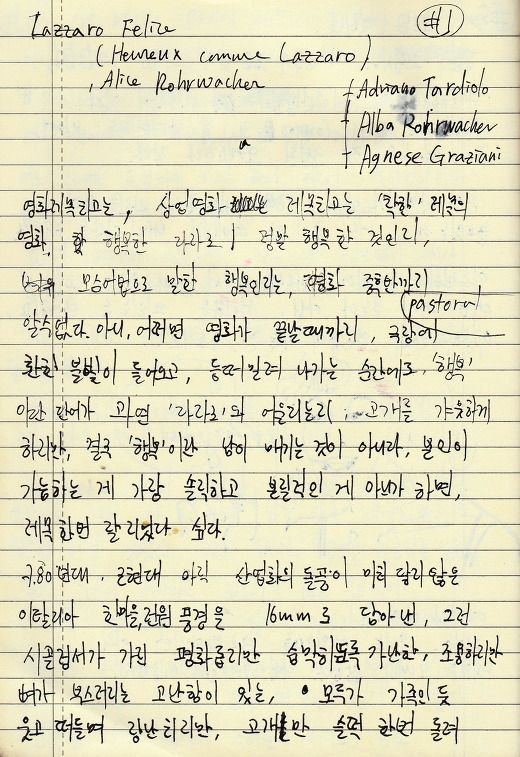 #1
Lazzaro Felice
(Heureux comme Lazzaro)
, Alice Rohrwacher
+ Adriano Tardiolo
+ Alba Rohrwacher
+ Agnese Graziani
영화제목치고는, 상업영화 제목치고는 '착한' 제목의
영화, 행복한 라짜로! 정말 행복한 것인지,
모순어법으로 말한 행복인지는, 영화 중후반까지
pastoral
알수없다. 아니, 어쩌면 영화가 끝날때까지, 극장에
환한 불빛이 들어오고, 등떠밀려 나가는 순간에도, '행복'
이란 단어가 과연 '라짜로'와 어울리는지, 고개를 갸웃하게
하지만, 결국 '행복'이란 남이 매기는 것이 아니라, 본인이
가늠하는 게 가장 솔직하고 본질적인 게 아닌가 하면,
제목 한번 잘 지었다 싶다.
7,80년대, 근현대 아직 산업화의 돌풍이 미처 닿지 않은
이탈리아 한마을, 전원 풍경을 16mm로 담아낸, 그런
시골집서가 가진 평화롭지만 숨막히도록 가난한, 조용하지만
뼈가 부스러지는 고난함이 있는, 모두가 가족인 듯
웃고 떠들며 장난치지만, 고개만 슬쩍 한번 돌려